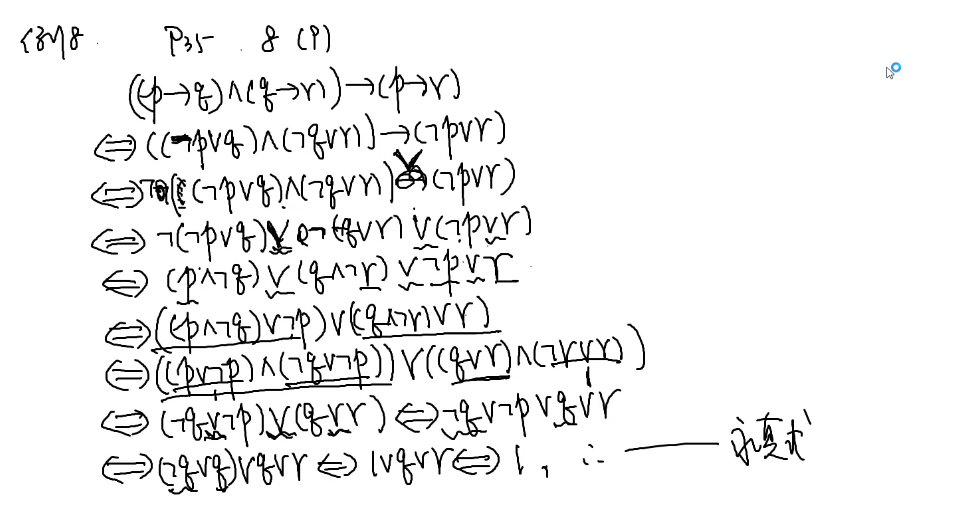 例8 P35 8 (1)
((p→q)∧(q→r))→(p→r)
⇔((¬p∨q)∧(¬q∨r))→(¬p∨r)
⇔¬((¬p∨q)∧(¬q∨r))∨(¬p∨r)
⇔¬(¬p∨q)∨¬(¬q∨r)∨(¬p∨r)
⇔(p∧¬q)∨(q∧¬r)∨¬p∨r
⇔((p∧¬q)∨¬p)∨((q∧¬r)∨r)
⇔((p∨¬p)∧(¬q∨¬p))∨((q∨r)∧(¬r∨r))
⇔(¬q∨¬p)∨(q∨r)⇔¬q∨¬p∨q∨r
⇔(¬q∨q)∨q∨r⇔1∨q∨r⇔1, ∴ —— 永真式